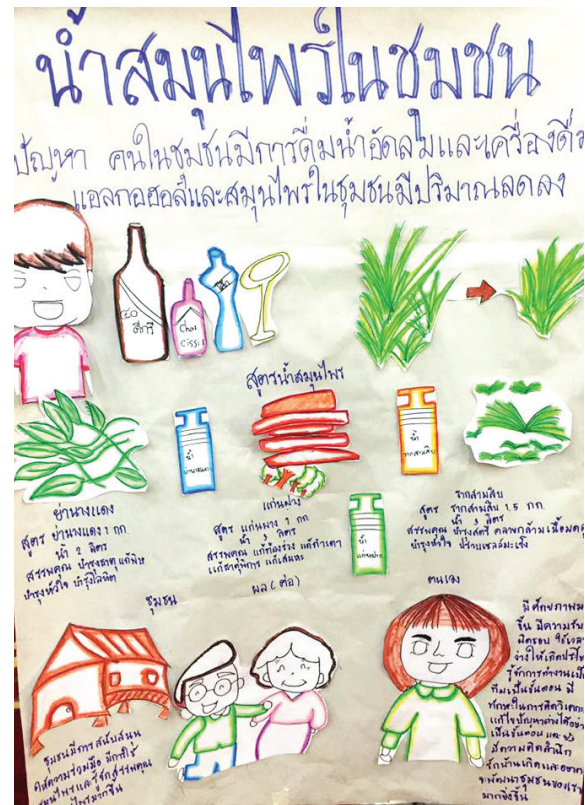 น้ำสมุนไพรในชุมชน
ปัญหา คนในชุมชนมีการดื่มน้ำอัดลมและเครื่องดื่ม
แอลกอฮอล์และสมุนไพรในชุมชนมีปริมาณลดลง
๔๐
ดีกรี
สูตรน้ำสมุนไพร
น้ำ
ย่านางแดง
น้ำ
รากสามสิบ
น้ำ
แก่นฝาง
ย่านางแดง
สูตร ย่านางแดง 1 กก.
น้ำ 2 ลิตร
สรรพคุณ บำรุงธาตุ แก้พิษ
บำรุงหัวใจ บำรุงโลหิต
แก่นฝาง
สูตร แก่นฝาง 1 กก.
น้ำ ลิตร
สรรพคุณ แก้ท้องร่วง แก้กำเดา
แก้ธาตุพิการ แก้เสมหะ
รากสามสิบ
สูตร รากสามสิบ 1.5 กก.
น้ำ ลิตร
สรรพคุณ บำรุงสตรี คลายกล้ามเนื้อมดลูก
บำรุงหัวใจ ปรับเซลล์มะเร็ง
ผล (ต่อ)
ชุมชน
ชุมชนมีการสนับสนุน
ให้ความร่วมมือ มีการใช้
สมุนไพรและรู้จักสรรพคุณ
ไพรมากขึ้น
ตนเอง
มีศักยภาพ
ขึ้น มีความรับ
ผิดชอบ ใช้เวลา
ว่างให้เกิดประโ
รู้จักการทำงานเป็น
ทีมเป็นขั้นตอน มี
ทักษะในการคิดวิเคราะ
แก้ไขปัญหาต่างได้อย่าง
เป็นขั้นตอน และ
มีความคิดสำนึก
รักบ้านเกิดและอยาก
จะพัฒนาชุมชนของเรา
มากยิ่งขึ้น